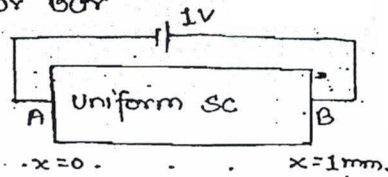 1V
Uniform SC
A B
x=0 x=1mm.